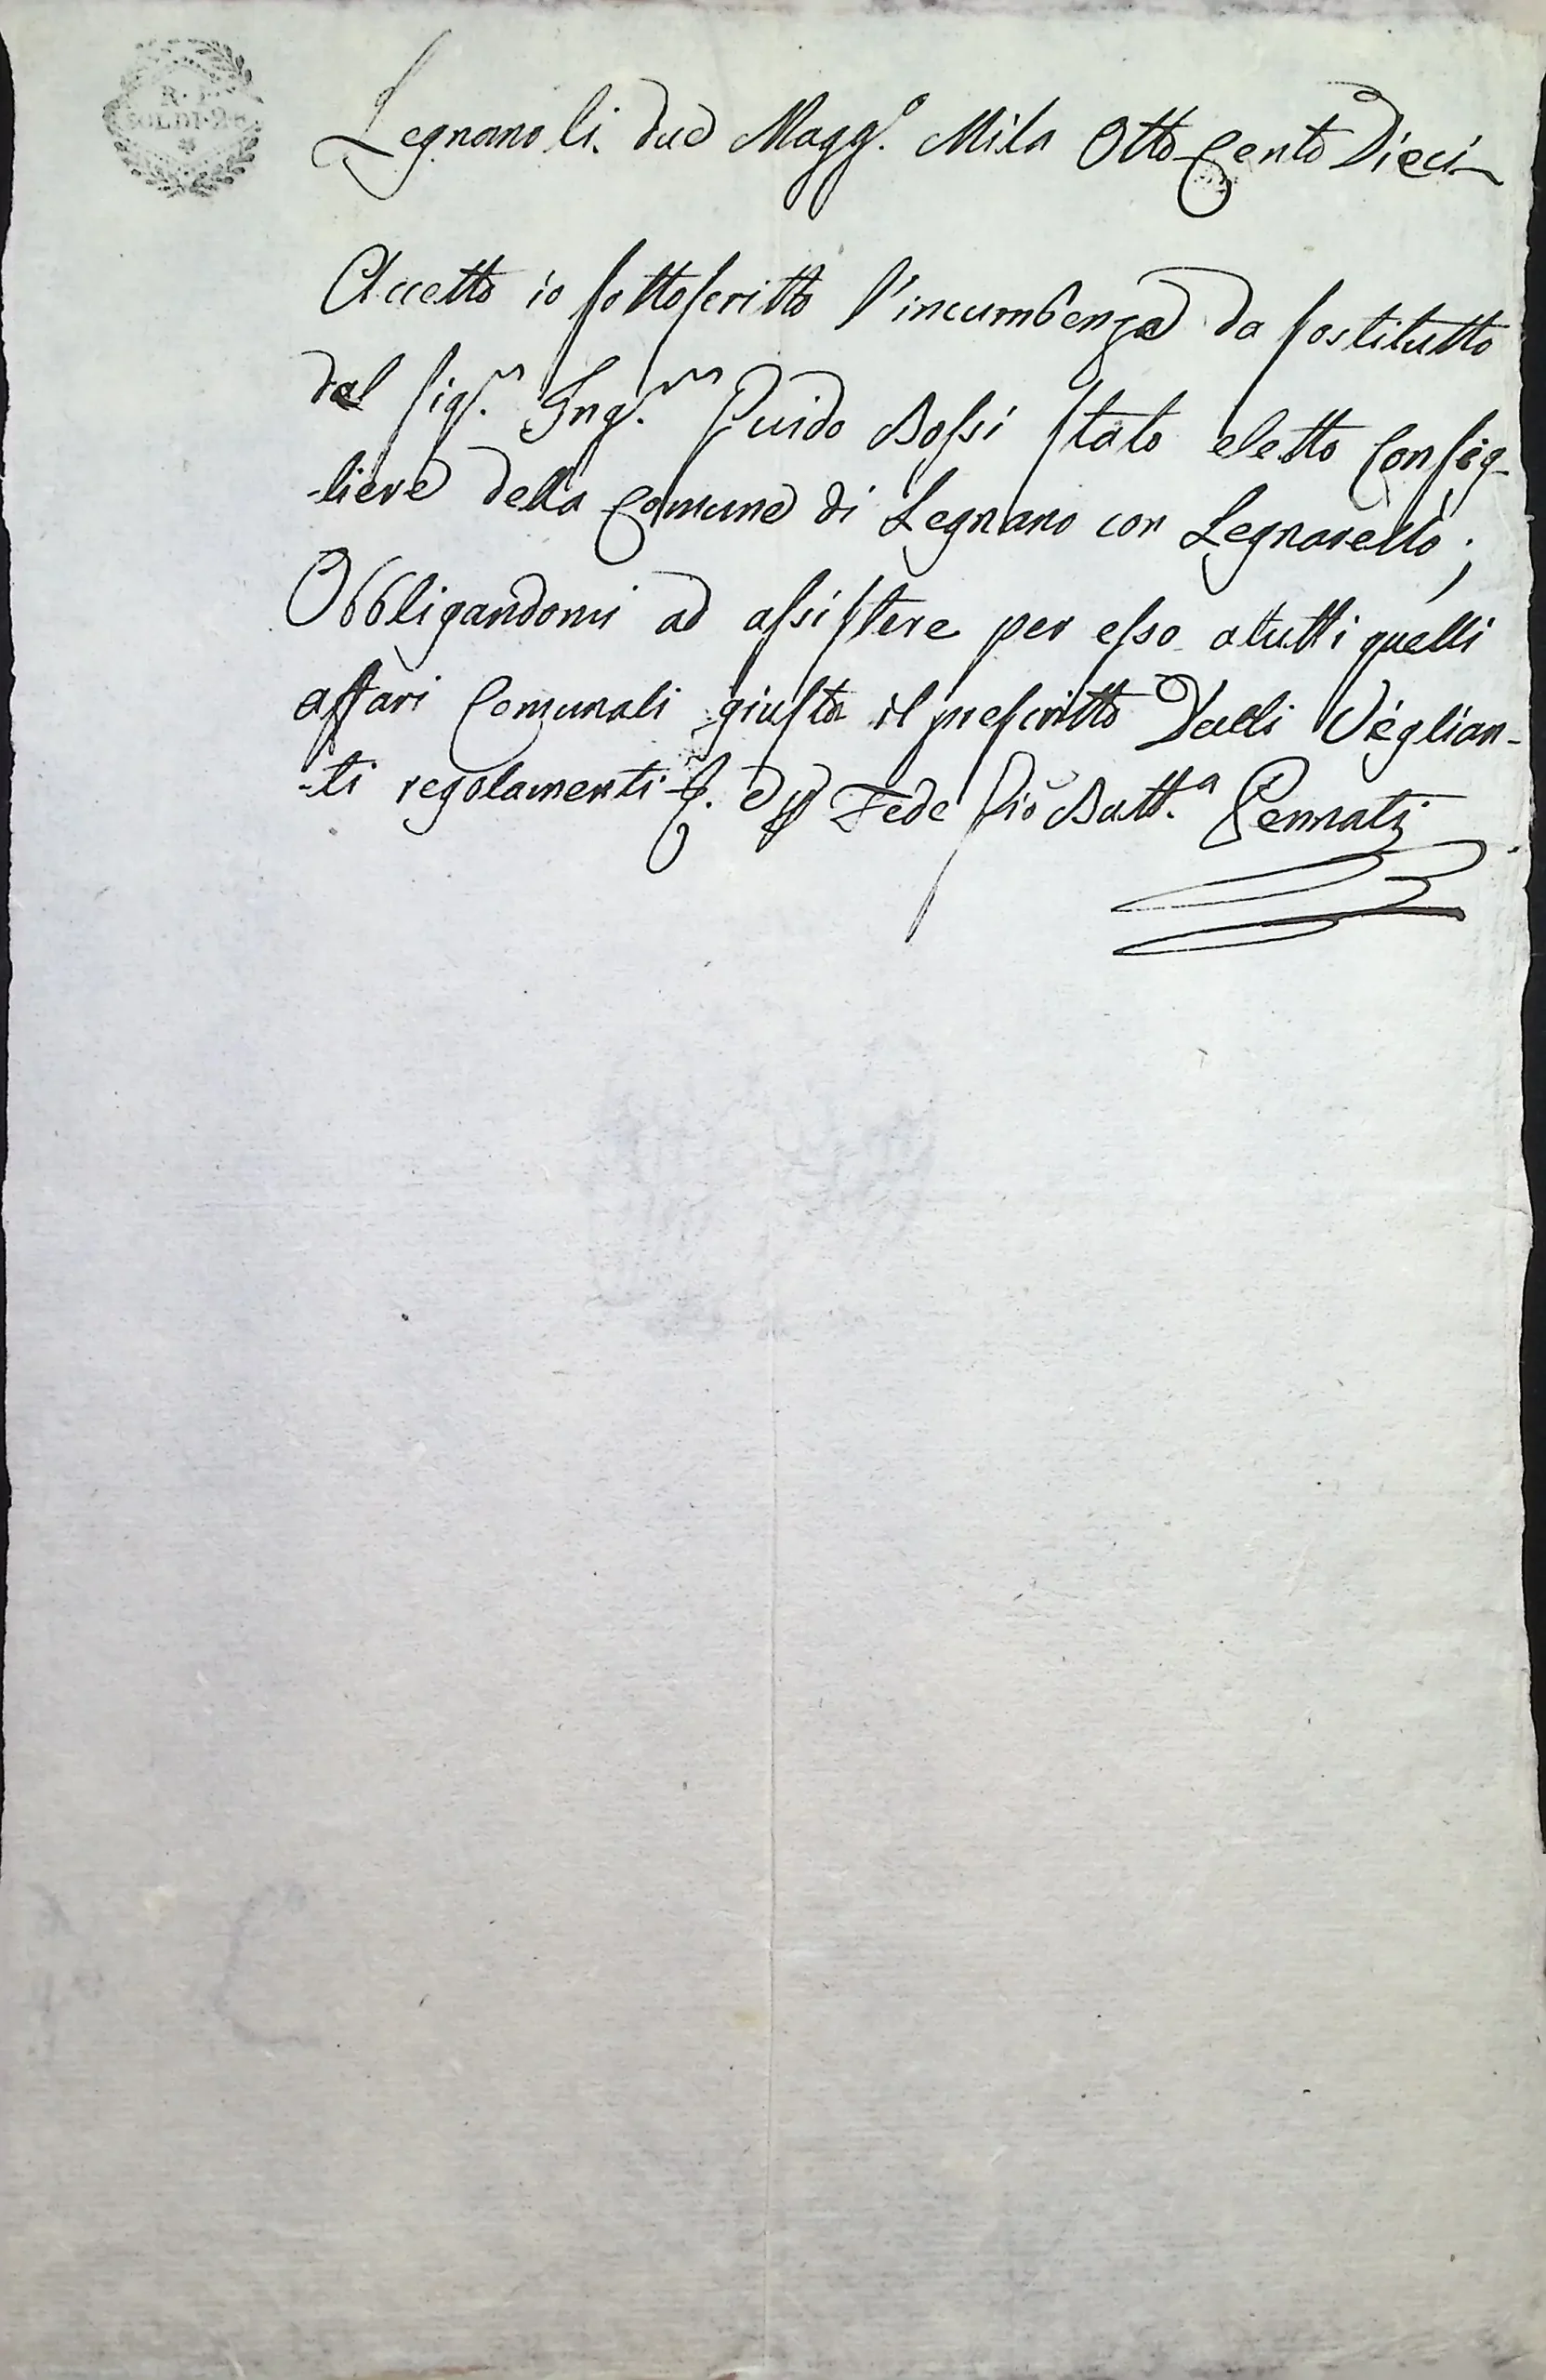 R. I.
SOLDI
Legnano li. due Magg.º Mila Otto Cento Dieci
Accetto io sottoscritto l'incumbenza da sostitutto
dal Sig.r Ing.r Guido Bossi stato eletto Consig-
-liere della Comune di Legnano con Legnarello;
Obbligandomi ad assistere per esso a tutti quelli
affari Comunali giusta il prescritto Dalli Veglian-
-ti regolamenti ed Fede Gio Batt.a Pennati